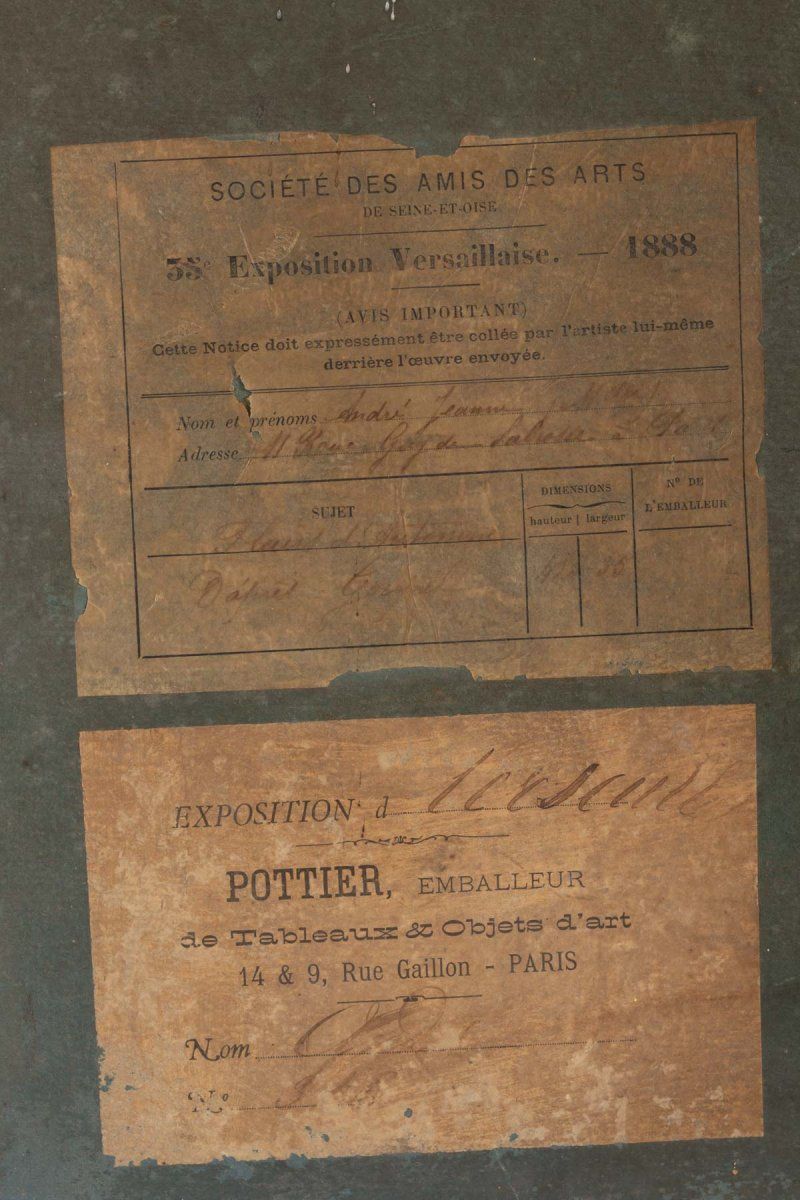 SOCIÉTÉ DES AMIS DES ARTS
DE SEINE-ET-OISE
35e Exposition Versaillaise. — 1888
(AVIS IMPORTANT)
Cette Notice doit expressément être collée par l'artiste lui-même
derrière l'œuvre envoyée.
Nom et prénoms André Jeanne
Adresse 11 Rue Guy de Labrosse à
SUJET
DIMENSIONS
hauteur | largeur
No DE
L'EMBALLEUR
35
EXPOSITION d
POTTIER, EMBALLEUR
de Tableaux & Objets d'art
14 & 9, Rue Gaillon - PARIS
Nom
No